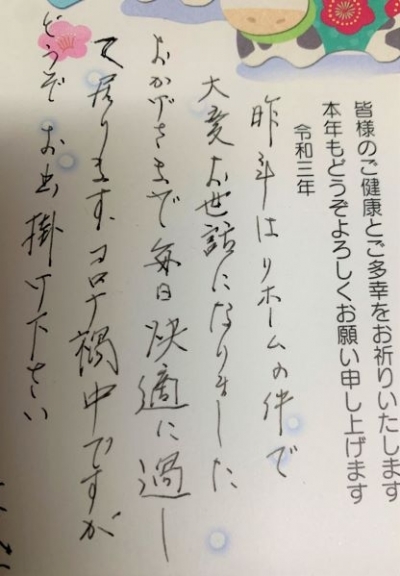 皆様のご健康とご多幸をお祈りいたします
本年もどうぞよろしくお願い申し上げます
令和三年
昨年はリホームの件で
大変お世話になりました
おかげさまで毎日快適に過し
て居ります。コロナ禍中ですが
どうぞお出掛け下さい